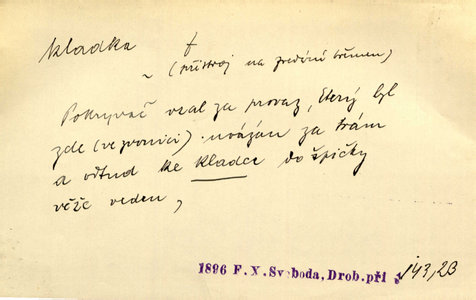 kladka f
~ (přístroj na zvedání břemen)
Pokrývač vzal za provaz, který byl
zde (ve zvonici) uvázán za trám
a odtud ke kladce do špičky
věže veden,
1896 F. X. Svoboda, Drob. pří 143, 23